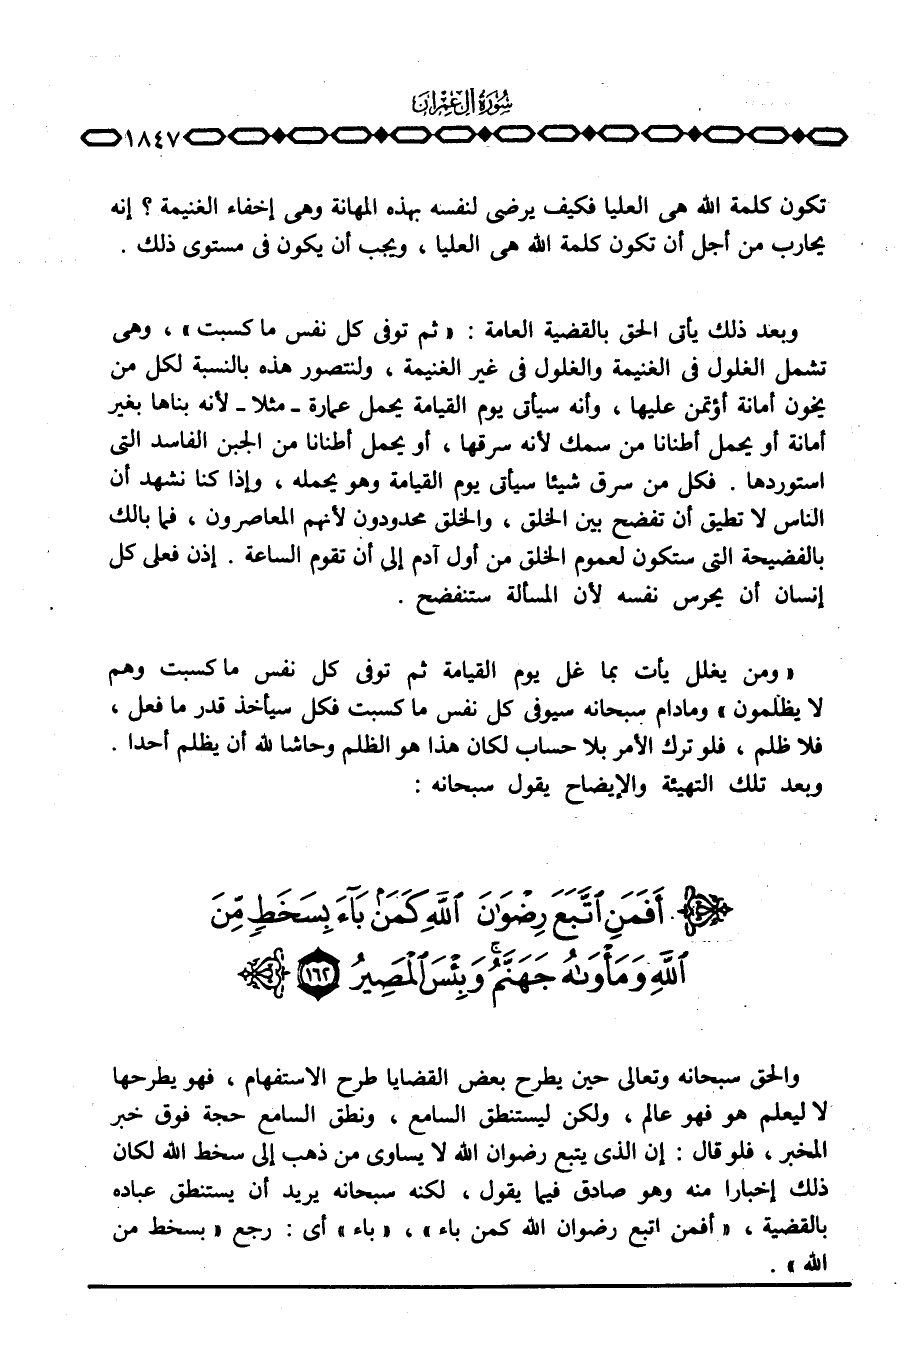 سُورَةُ آلِ عِمْرَانَ
١٨٤٧
تكون كلمة الله هى العليا فكيف يرضى لنفسه بهذه المهانة وهى إخفاء الغنيمة ؟ إنه
يحارب من أجل أن تكون كلمة الله هى العليا ، ويجب أن يكون فى مستوى ذلك .
وبعد ذلك يأتى الحق بالقضية العامة : « ثم توفى كل نفس ما كسبت » ، وهى
تشمل الغلول فى الغنيمة والغلول فى غير الغنيمة ، ولنتصور هذه بالنسبة لكل من
يخون أمانة أؤتمن عليها ، وأنه سيأتى يوم القيامة يحمل عمارة ـ مثلا ـ لأنه بناها بغير
أمانة أو يحمل أطنانا من سمك لأنه سرقها ، أو يحمل أطنانا من الجبن الفاسد التى
استوردها . فكل من سرق شيئا سيأتى يوم القيامة وهو يحمله ، وإذا كنا نشهد أن
الناس لا تطيق أن تفضح بين الخلق ، والخلق محدودون لأنهم المعاصرون ، فما بالك
بالفضيحة التى ستكون لعموم الخلق من أول آدم إلى أن تقوم الساعة . إذن فعلى كل
إنسان أن يحرس نفسه لأن المسألة ستنفضح .
« ومن يغلل يأت بما غل يوم القيامة ثم توفى كل نفس ما كسبت وهم
لا يظلمون » ومادام سبحانه سيوفى كل نفس ما كسبت فكل سيأخذ قدر ما فعل ،
فلا ظلم ، فلو ترك الأمر بلا حساب لكان هذا هو الظلم وحاشا لله أن يظلم أحدا .
وبعد تلك التهيئة والإيضاح يقول سبحانه :
أَفَمَنِ ٱتَّبَعَ رِضْوَٰنَ ٱللَّهِ كَمَنۢ بَآءَ بِسَخَطٍ مِّنَ
ٱللَّهِ وَمَأْوَىٰهُ جَهَنَّمُ ۚ وَبِئْسَ ٱلْمَصِيرُ ١٦٢
والحق سبحانه وتعالى حين يطرح بعض القضايا طرح الاستفهام ، فهو يطرحها
لا ليعلم هو فهو عالم ، ولكن ليستنطق السامع ، ونطق السامع حجة فوق خبر
المخبر ، فلو قال : إن الذى يتبع رضوان الله لا يساوى من ذهب إلى سخط الله لكان
ذلك إخبارا منه وهو صادق فيما يقول ، لكنه سبحانه يريد أن يستنطق عباده
بالقضية ، « أفمن اتبع رضوان الله كمن باء » ، « باء » أى : رجع « بسخط من
الله » .